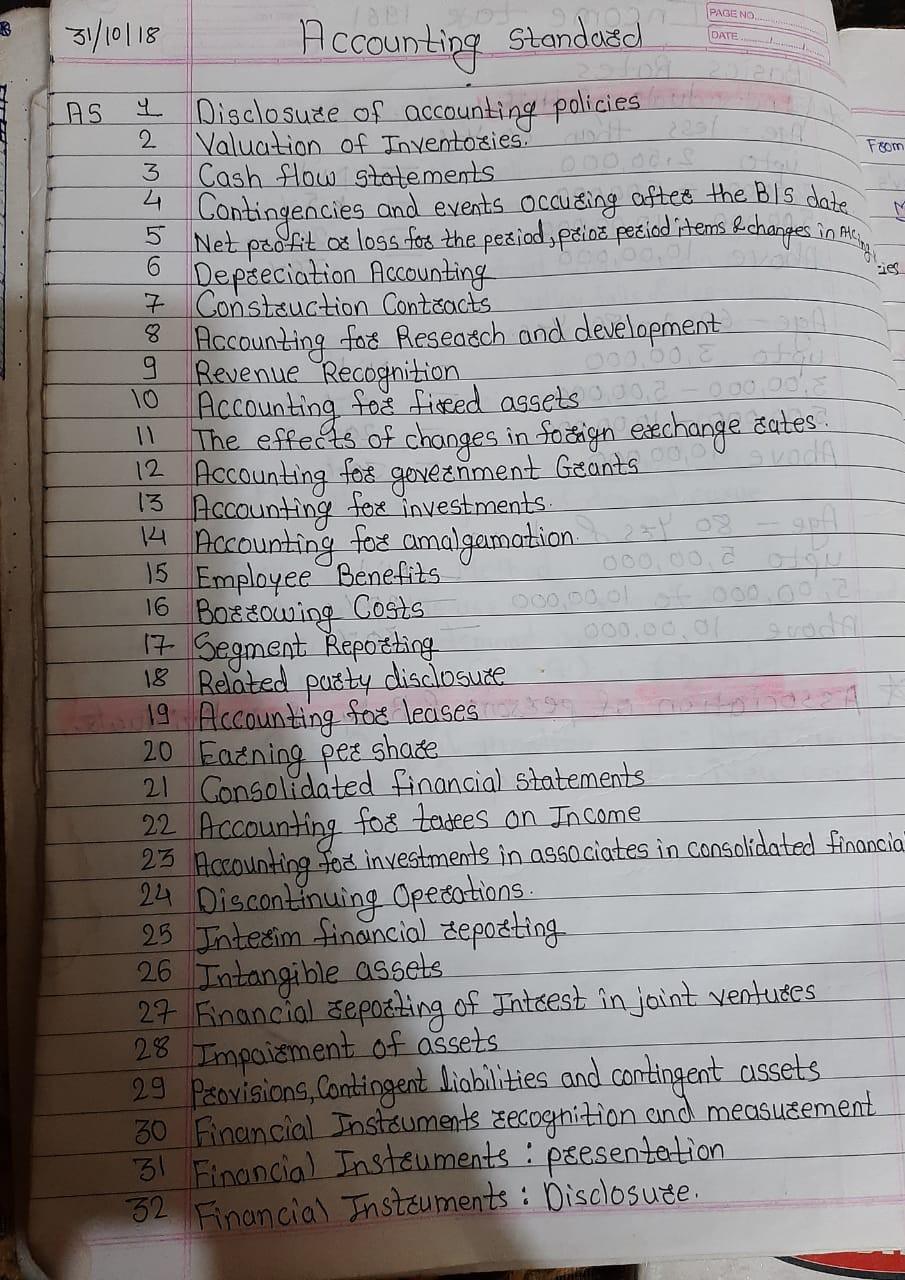 31/10/18 Accounting Standard
PAGE NO.
DATE
AS 1 Disclosure of accounting policies
2 Valuation of Inventories.
3 Cash flow statements
4 Contingencies and events occuring after the B/S date
5 Net profit or loss for the period, prior period items & changes in
6 Depreciation Accounting
7 Construction Contracts
8 Accounting for Research and development
9 Revenue Recognition
10 Accounting for fixed assets
11 The effects of changes in foreign exchange rates.
12 Accounting for government Grants
13 Accounting for investments.
14 Accounting for amalgamation.
15 Employee Benefits
16 Borrowing Costs
17 Segment Reporting
18 Related party disclosure
19 Accounting for leases
20 Earning per share
21 Consolidated financial statements
22 Accounting for taxes on Income
23 Accounting for investments in associates in consolidated financia
24 Discontinuing Operations.
25 Interim financial reporting
26 Intangible assets
27 Financial reporting of Intrest in joint ventures
28 Impairment of assets
29 Provisions, Contingent liabilities and contingent assets
30 Financial Instruments recognition and measurement
31 Financial Instruments : presentation
32 Financial Instruments : Disclosure.
From